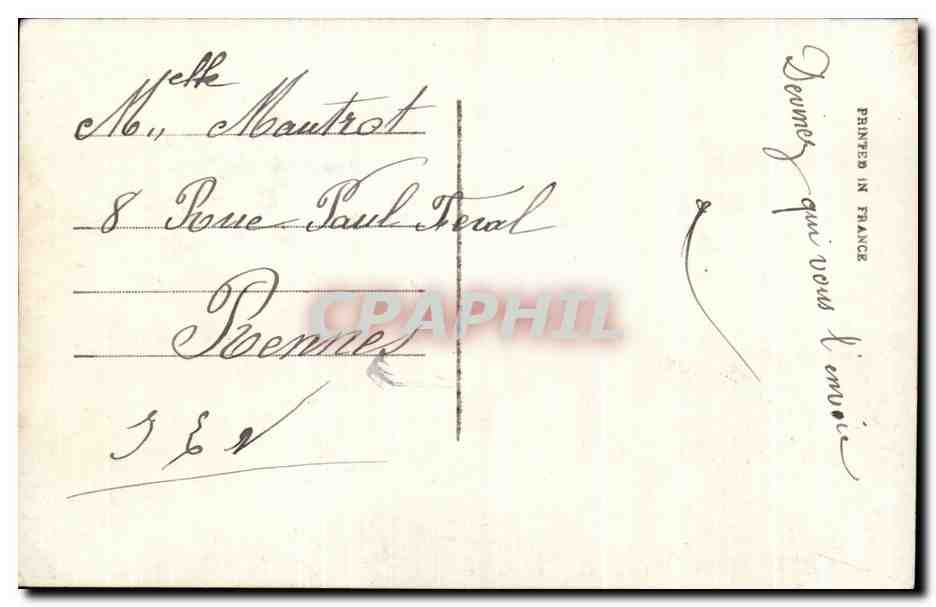 Melle
M,, Mautrot
8 Rue Paul Feval
Rennes
I E V
Devinez qui vous l'envoie
PRINTED IN FRANCE
CPAPHIL